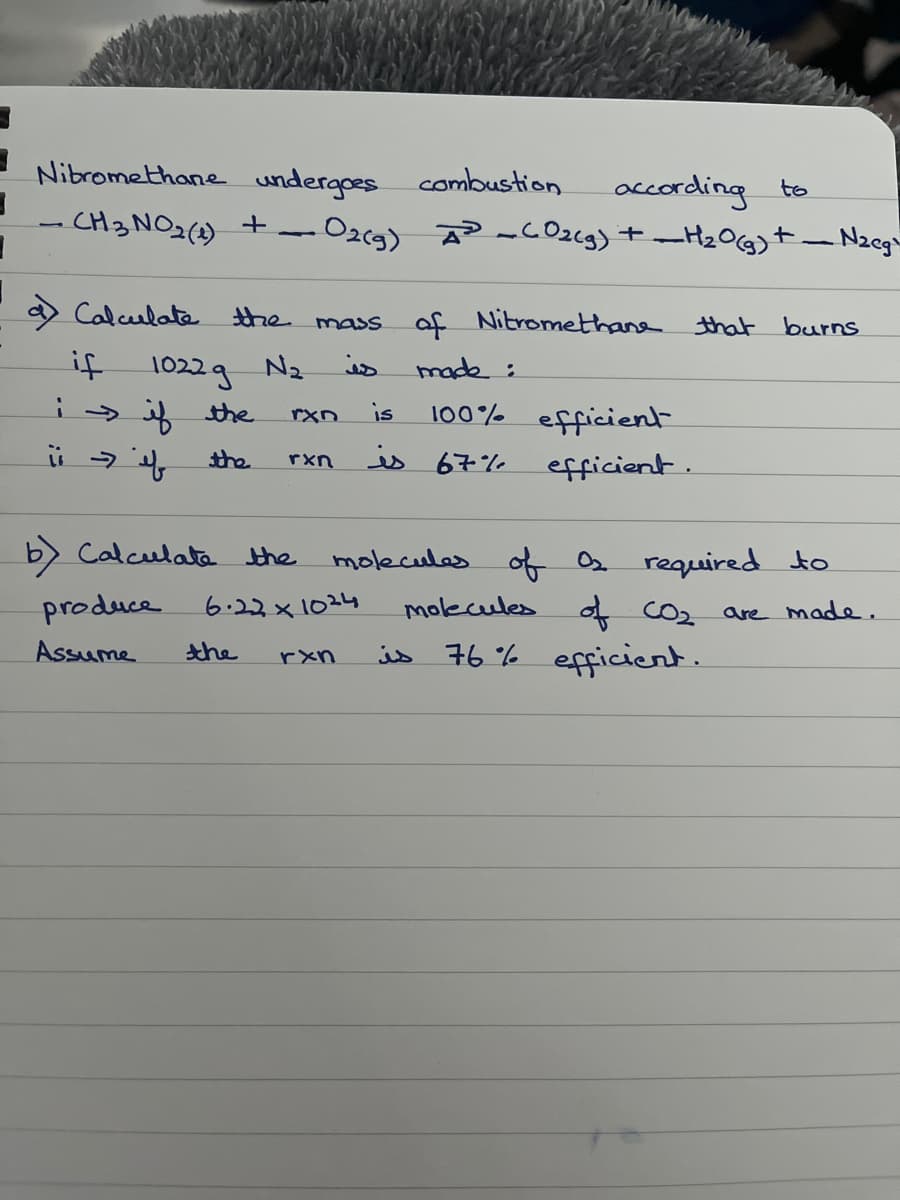 Nitromethane undergoes combustion according to
- CH3NO2(l) + — O2(g) → Δ - CO2(g) + — H2O(g) + — N2(g)
a) Calculate the mass of Nitromethane that burns
if 1022g N2 is made :
i → if the rxn is 100% efficient
ii → if the rxn is 67% efficient.
b) Calculate the molecules of O2 required to
produce 6.22 x 10^24 molecules of CO2 are made.
Assume the rxn is 76% efficient.